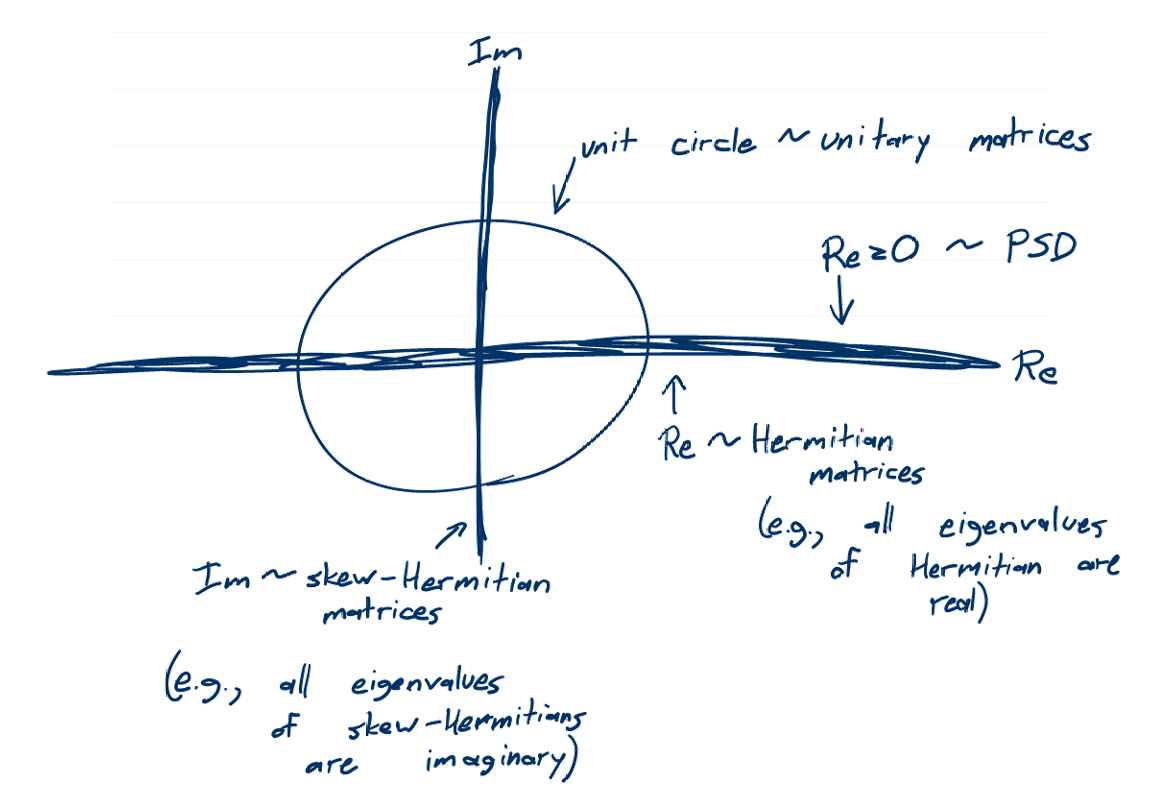 Im
unit circle ~ unitary matrices
Re ≥ 0 ~ PSD
Re
Re ~ Hermitian
matrices
(e.g., all eigenvalues
of Hermitian are
real)
Im ~ skew-Hermitian
matrices
(e.g., all eigenvalues
of skew-Hermitians
are imaginary)